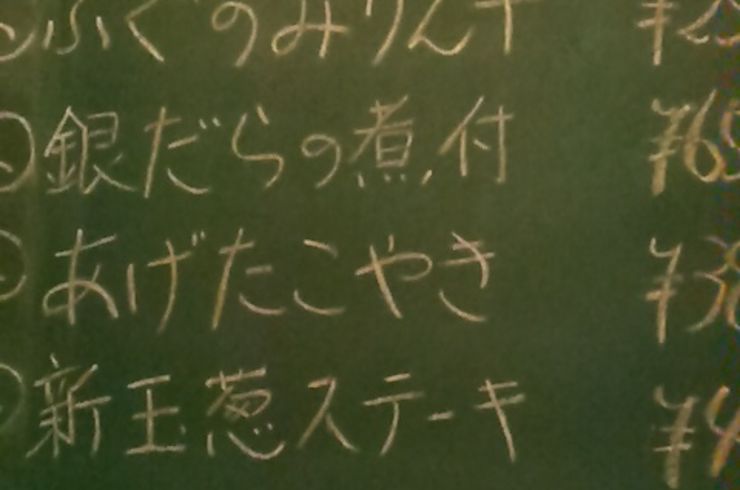 ふぐのみりん干
銀だらの煮付 ¥65
あげたこやき ¥38
新玉葱ステーキ ¥4